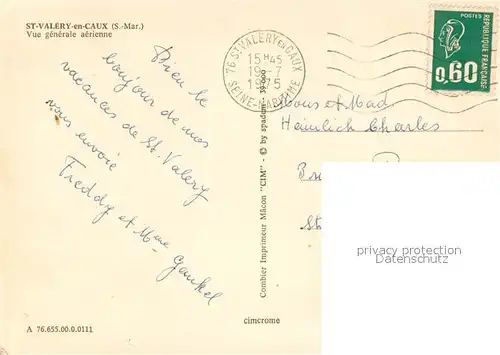 ST-VALÉRY-en-CAUX (S.-Mar.)
Vue générale aérienne
Bien le
bonjour de mes
vacances de St. Valery
vous envoie
Freddy et Mme Gankel
A 76.655.00.0.0111
cimcrome
Combier Imprimeur Mâcon "CIM" - © by spadem
76 ST-VALERY EN CAUX
15 H 45
19 - 7
1975
SEINE-MARITIME
POSTES
REPUBLIQUE FRANÇAISE
0,60
Mons et Mad
Heimlich Charles
privacy protection
Datenschutz